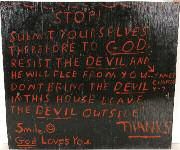 STOP!
SUBMIT YOURSELVES
THEREFORE TO GOD.
RESIST THE DEVIL AND
HE WILL FLEE FROM YOU
DON'T BRING THE DEVIL
IN THIS HOUSE LEAVE
THE DEVIL OUTSIDE!
THANKS
Smile
God Loves You.